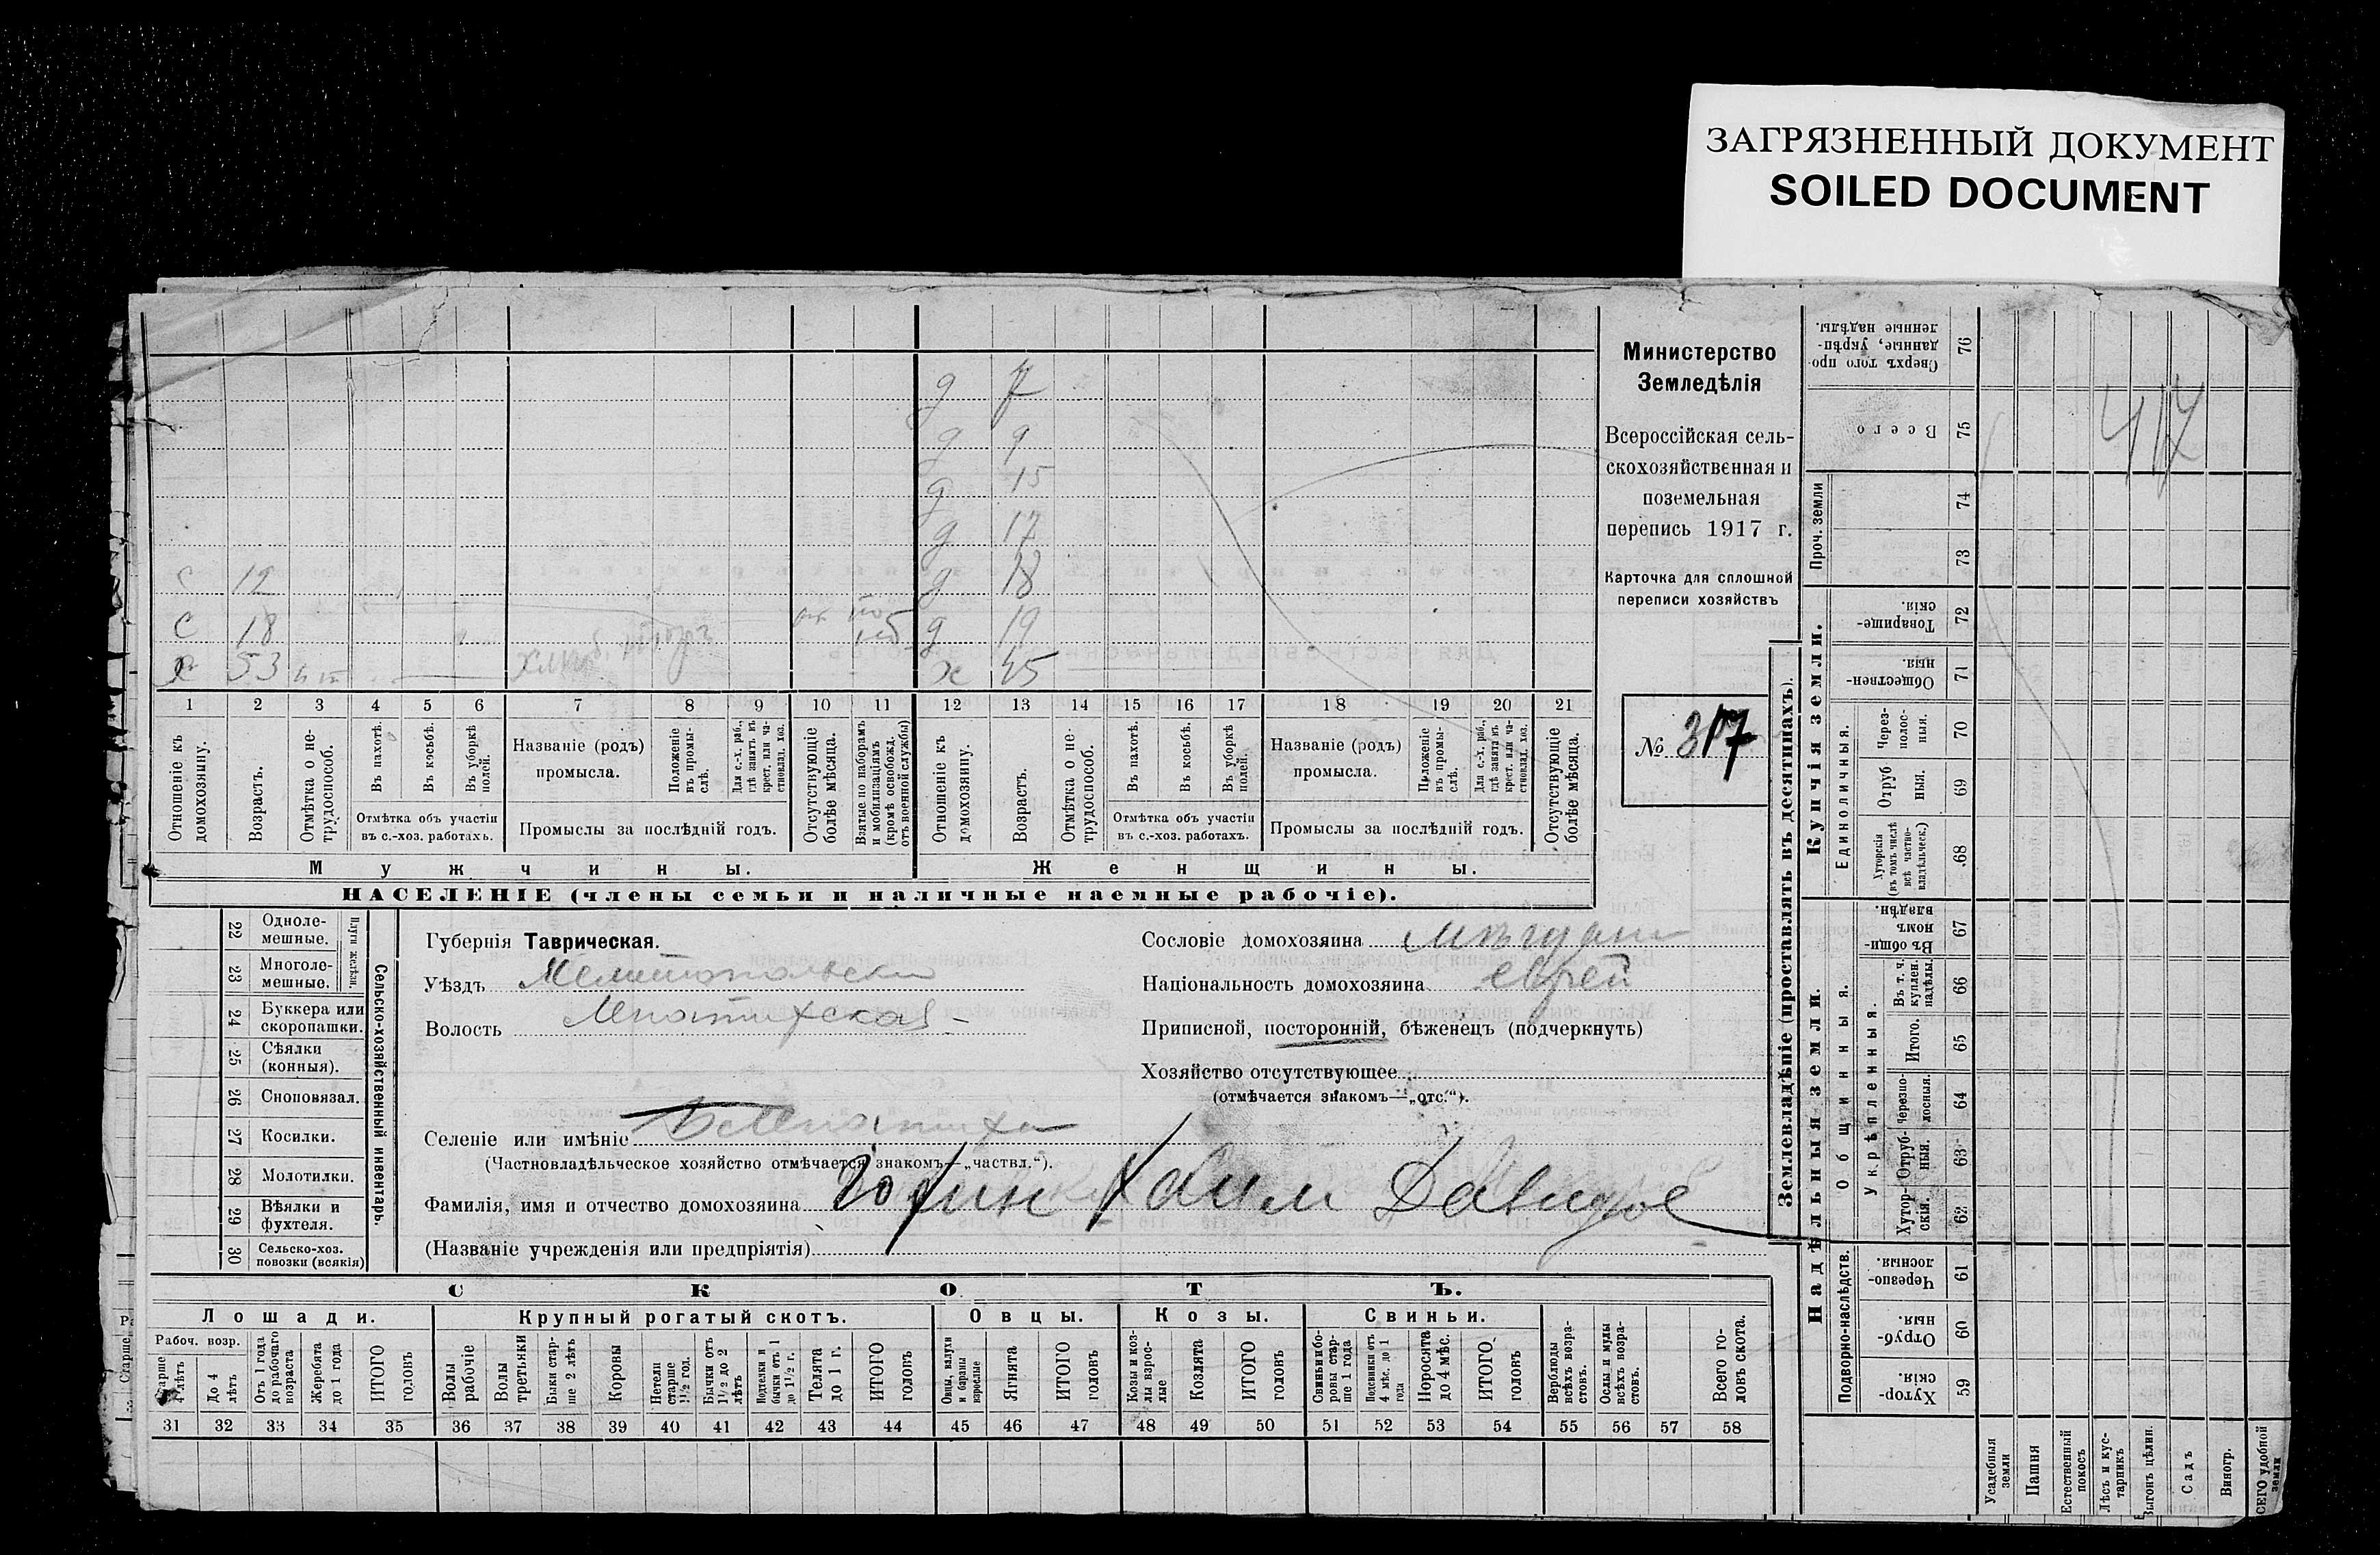 ЗАГРЯЗНЕННЫЙ ДОКУМЕНТ
SOILED DOCUMENT
Министерство
Земледѣлія
Всероссійская сель-
скохозяйственная и
поземельная
перепись 1917 г.
Карточка для сплошной
переписи хозяйствъ
№ 317
д 7
д 9
д 15
д 17
с 12 д 18
с 18 д 19
х 53 х 45
1 2 3 4 5 6 7 8 9 10 11 12 13 14 15 16 17 18 19 20 21
Отношеніе къ домохозяину.
Возрастъ.
Отмѣтка о не-трудоспособ.
Въ пахотѣ.
Въ косьбѣ.
Въ уборкѣ полей.
Отмѣтка объ участіи
въ с.-хоз. работахъ.
Названіе (родъ)
промысла.
Положеніе въ промы-слѣ.
Для с.-х. раб., гдѣ занятъ въ крест. или ча-стновлад. хоз.
Промыслы за послѣдній годъ.
Отсутствующіе болѣе мѣсяца.
Взятые по наборамъ и мобилизаціямъ (кромѣ освобожд. отъ военной службы)
Отношеніе къ домохозяину.
Возрастъ.
Отмѣтка о не-трудоспособ.
Въ пахотѣ.
Въ косьбѣ.
Въ уборкѣ полей.
Отмѣтка объ участіи
въ с.-хоз. работахъ.
Названіе (родъ)
промысла.
Положеніе въ промы-слѣ.
Для с.-х. раб., гдѣ занята въ крест. или ча-стновлад. хоз.
Промыслы за послѣдній годъ.
Отсутствующіе болѣе мѣсяца.
Мужчины. Женщины.
НАСЕЛЕНІЕ (члены семьи и наличные наемные рабочіе).
Сельско-хозяйственный инвентарь.
Плуги желѣзн.
22 Одноле-мешные.
23 Многоле-мешные.
24 Буккера или скоропашки.
25 Сѣялки (конныя).
26 Сноповязал.
27 Косилки.
28 Молотилки.
29 Вѣялки и фухтеля.
30 Сельско-хоз. повозки (всякія)
Губернія Таврическая.
Уѣздъ Мелитопольски
Волость
Сословіе домохозяина
Національность домохозяина еврей
Приписной, посторонній, бѣженецъ (подчеркнуть)
Хозяйство отсутствующее
(отмѣчается знакомъ—„отс.“).
Селеніе или имѣніе
(Частновладѣльческое хозяйство отмѣчается знакомъ—„частвл.“).
Фамилія, имя и отчество домохозяина Хаим Давидов
(Названіе учрежденія или предпріятія)
СКОТЪ.
Лошади. Крупный рогатый скотъ. Овцы. Козы. Свиньи.
Рабоч. возр.
Старше 4 лѣтъ
До 4 лѣтъ
Отъ 1 года до рабочаго возраста
Жеребята до 1 года
ИТОГО головъ
Волы рабочіе
Волы третьяки
Быки стар-ше 2 лѣтъ
Коровы
Нетели старше 1½ год.
Бычки отъ 1½ до 2 лѣтъ
Подтелки и бычки отъ 1 до 1½ г.
Телята до 1 г.
ИТОГО головъ
Овцы, валухи и бараны взрослые
Ягнята
ИТОГО головъ
Козы и коз-лы взрос-лые
Козлята
ИТОГО головъ
Свиньи и бо-ровы стар-ше 1 года
Подсвинки отъ 4 мѣс. до 1 года
Поросята до 4 мѣс.
ИТОГО головъ
Верблюды всѣхъ возра-стовъ.
Ослы и мулы всѣхъ возра-стовъ.
Всего го-ловъ скота.
31 32 33 34 35 36 37 38 39 40 41 42 43 44 45 46 47 48 49 50 51 52 53 54 55 56 57 58
Землевладѣніе (проставлять въ десятинахъ).
Сверхъ того про-данные, укрѣп-ленные надѣлы. 76
Всего 75
Проч. земли 74 73
Купчія земли.
Товарище-скія. 72
Обществен-ныя. 71
Единоличныя.
Через-полос-ныя. 70
Отруб-ныя. 69
Хуторскія (въ томъ числѣ всѣ частно-владѣльческ.) 68
Надѣльныя земли.
Общинныя.
Въ общин-номъ владѣн. 67
Укрѣпленныя.
Въ т. ч. куплен. надѣлы. 66
Итого. 65
Черезпо-лосныя. 64
Отруб-ныя. 63
Хутор-скія. 62
Подворно-наслѣдств.
Черезпо-лосныя. 61
Отруб-ныя. 60
Хутор-скія. 59
Усадебныя земли
Пашня
Естественный покосъ
Лѣсъ и кус-тарникъ
Выгонъ цѣлин.
Садъ
Виногр.
ВСЕГО удобной земли